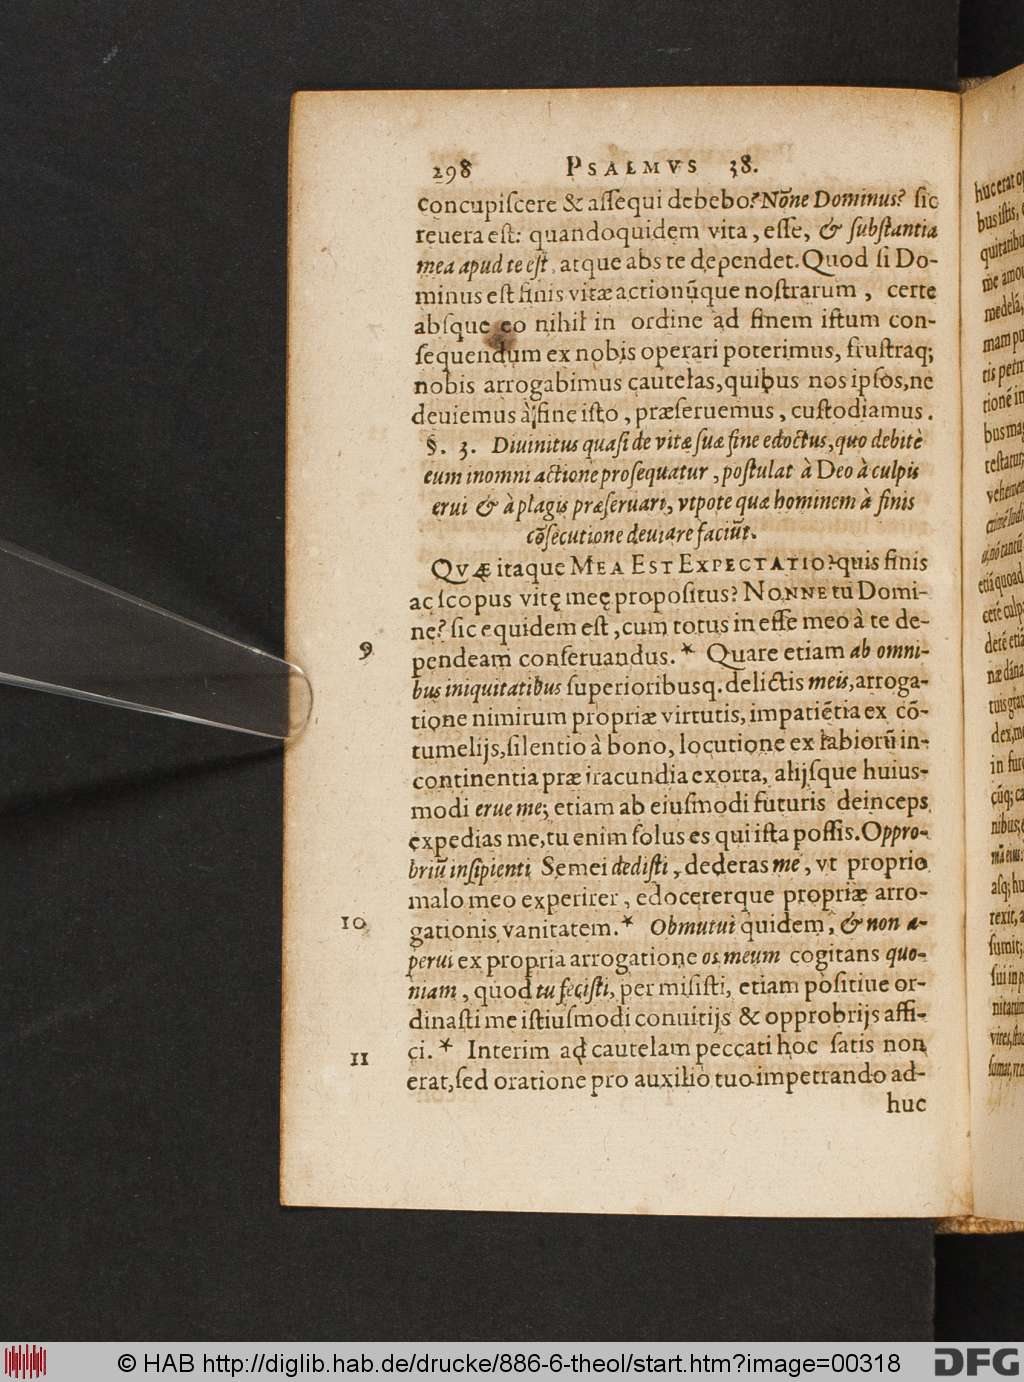 298 PSALMVS 38.
concupiſcere & aſſequi debebo? Nōne Dominus? ſic
reuera eſt: quandoquidem vita, eſſe, & ſubſtantia
mea apud te eſt, atque abs te dependet. Quod ſi Do-
minus eſt finis vitæ actionūque noſtrarum, certe
abſque eo nihil in ordine ad finem iſtum con-
ſequendum ex nobis operari poterimus, fruſtraq;
nobis arrogabimus cautelas, quibus nos ipſos, ne
deuiemus à fine iſto, præſeruemus, cuſtodiamus.
§. 3. Diuinitus quaſi de vitæ ſuæ fine edoctus, quo debitè
eum in omni actione proſequatur, poſtulat à Deo à culpis
erui & à plagis præſeruari, vtpote quæ hominem à finis
cōſecutione deuiare faciūt.
QVÆ itaque MEA EST EXPECTATIO? quis finis
ac ſcopus vitę meę propoſitus? NONNE tu Domi-
ne? ſic equidem eſt, cum totus in eſſe meo à te de-
9 pendeam conſeruandus.* Quare etiam ab omni-
bus iniquitatibus ſuperioribusq. delictis meis, arroga-
tione nimirum propriæ virtutis, impatiētia ex cō-
tumelijs, ſilentio à bono, locutione ex labiorū in-
continentia præ iracundia exorta, alijſque huius-
modi erue me; etiam ab eiuſmodi futuris deinceps
expedias me, tu enim ſolus es qui iſta poſſis. Oppro-
briū inſipienti Semei dediſti, dederas me, vt proprio
malo meo experirer, edocererque propriæ arro-
10 gationis vanitatem.* Obmutui quidem, & non a-
perui ex propria arrogatione os meum cogitans quo-
niam, quod tu feciſti, permiſiſti, etiam poſitiue or-
dinaſti me iſtiuſmodi conuitijs & opprobrijs affi-
11 ci.* Interim ad cautelam peccati hoc ſatis non
erat, ſed oratione pro auxilio tuo impetrando ad-
huc
© HAB http://diglib.hab.de/drucke/886-6-theol/start.htm?image=00318
DFG